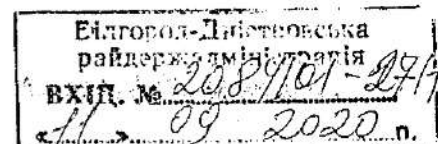 Білгород-Дністровська
райдержадміністрація
ВХІД. № 2084/01-27/
«11» 09 2020 р.